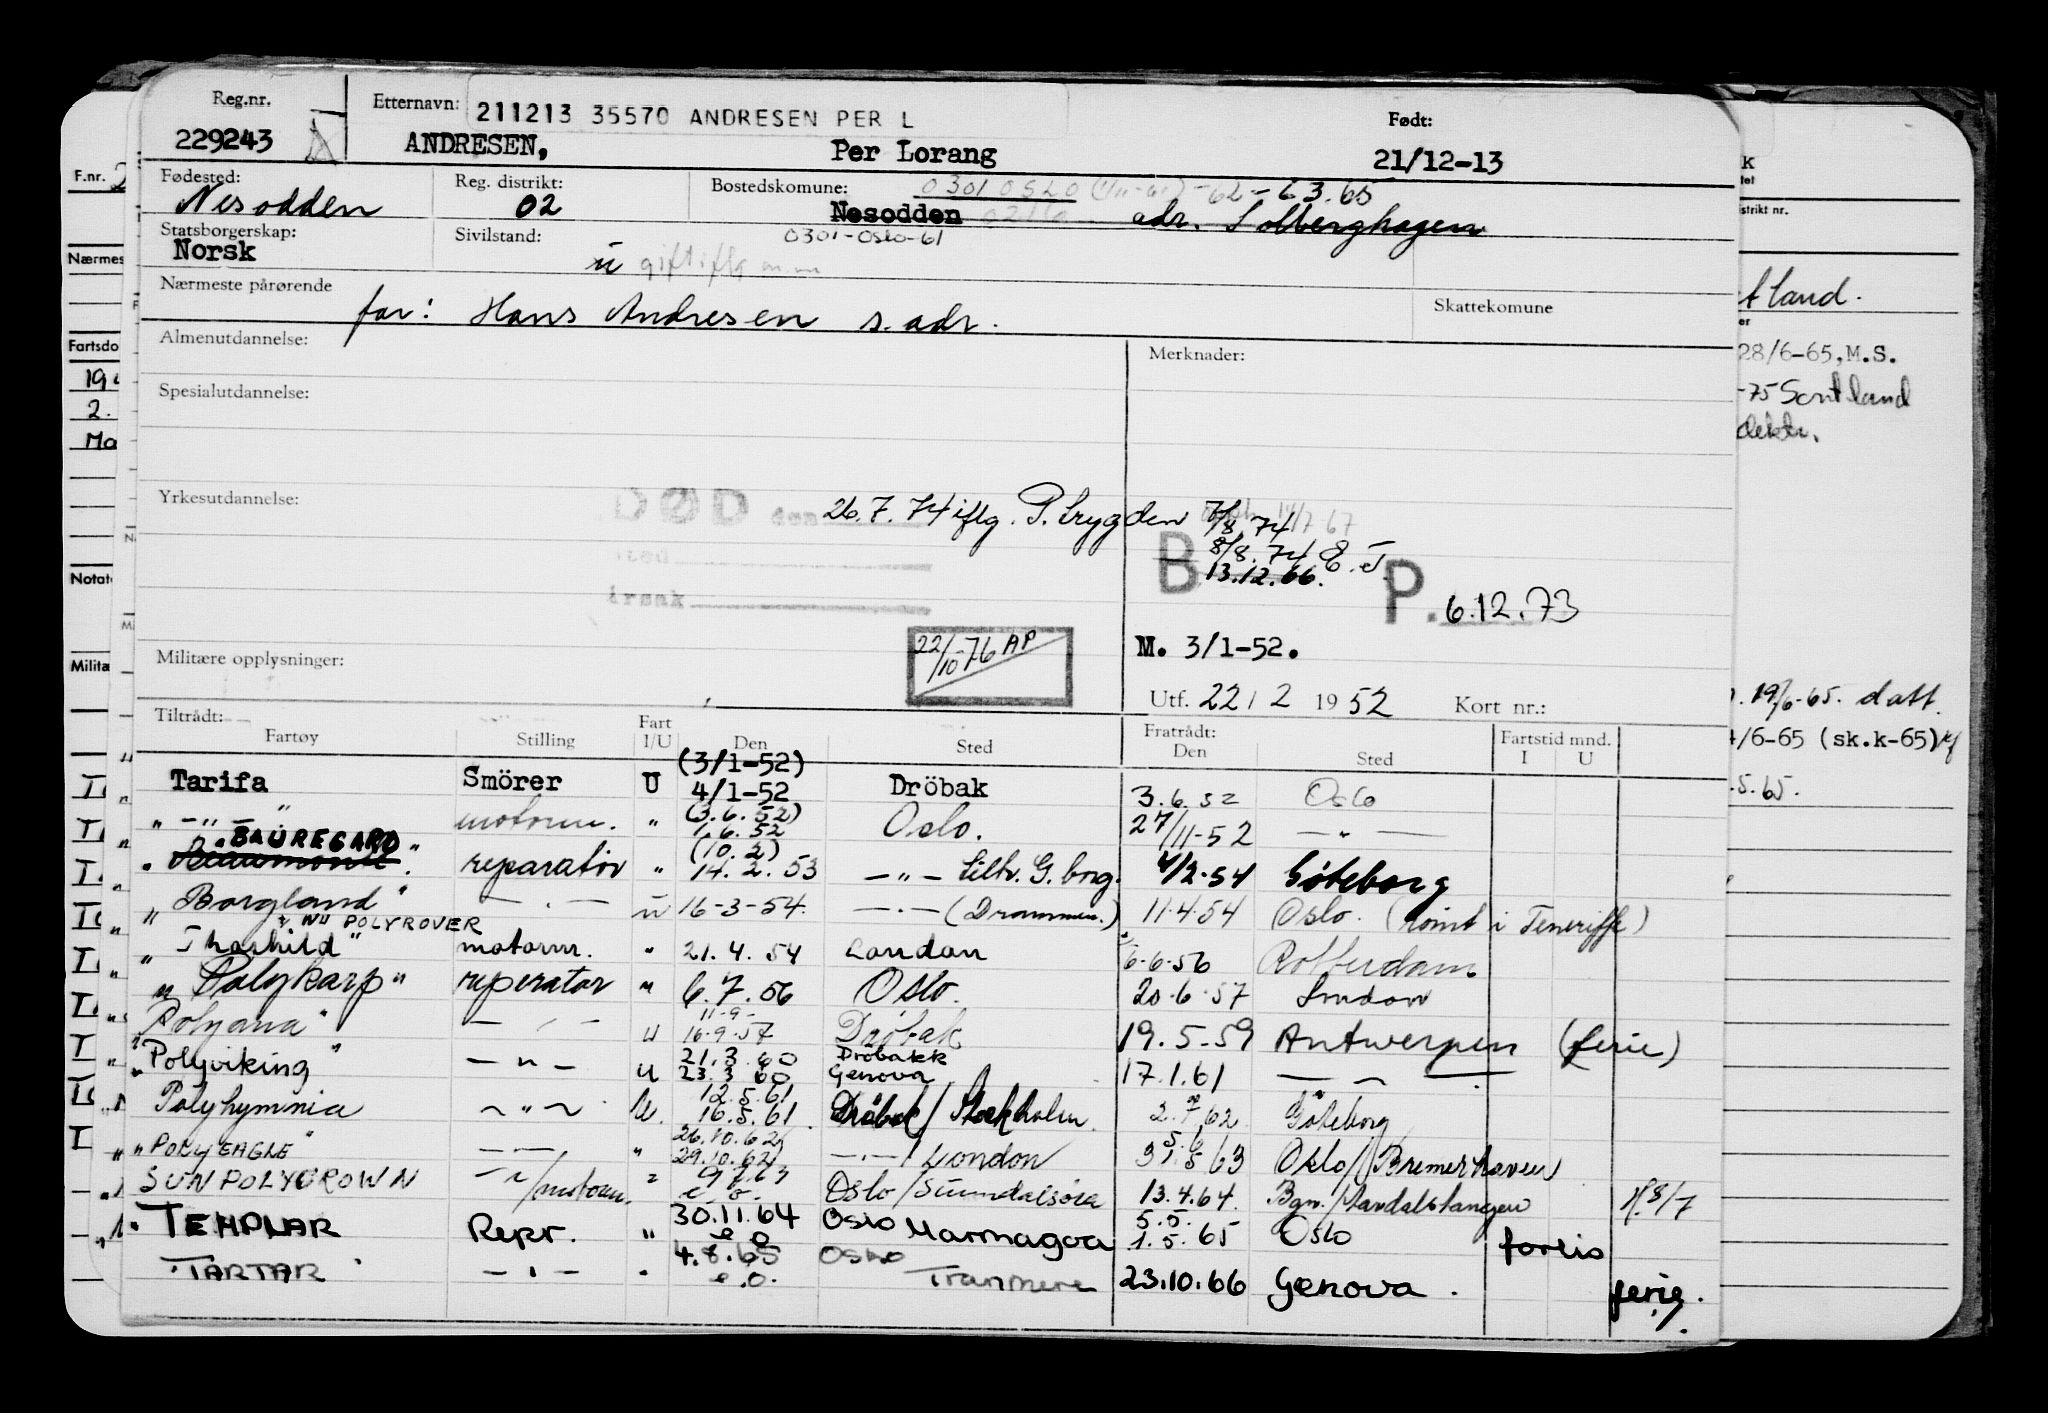 Reg.nr. Etternavn: 211213 35570 ANDRESEN PER L Født:
229243 ANDRESEN, Per Lorang 21/12-13
Fødested: Reg. distrikt: Bostedskomune: 0301 0520 -62-63.65
Nesodden 02 Nesodden adr. Solberghagen
Statsborgerskap: Sivilstand: 0301-Oslo-61
Norsk u gift iflg
Nærmeste pårørende
far: Hans Andresen s. adr. Skattekomune
Almenutdannelse: Merknader:
Spesialutdannelse:
Yrkesutdannelse: DØD den 26.7.74 iflg. P. trygden 7/8.74
8/8.74 E.J.
B 13.12.66. P. 6.12.73
Årsak
22/10-76 AP M. 3/1-52.
Militære opplysninger:
Utf. 22/2 1952 Kort nr.:
Tiltrådt: Fratrådt: Fartstid mnd.
Fartøy Stilling Fart I/U Den Sted Den Sted I U
(3/1-52)
Tarifa Smörer U 4/1-52 Dröbak 3.6.52 Oslo
" -"- motorm. " (3.6.52) 1.6.52 Oslo. 27/11-52 -"-
"BAUREGARD"
" Beaumont". reparatör " (10.2) 14.2.53 -"- tiltr. G.borg. 4/2-54 Göteborg
" Borgland" -"- u 16-3-54. -"- (Drammen.) 11.4.54 Oslo. (römt i Teneriffe)
NU POLYROVER
" Thorshild" motorm. " 21.4.54 London 6-6-56 Rotterdam
" Polykarp" reperatör " 6.7.56 Oslo. 20.6.57 London
11-9-
" Polyana" -"- u 16.9.57 Dröbak 19.5.59 Antwerpen (ferie)
" Polyviking" -"- u 21.3.60 23.3.60 Dröbakk Genova 17.1.61 -"-
Polyhymnia -"- u. 12.5.61 16.5.61 Dröbak/Stockholm. 2.7.62 Göteborg
" POLYEAGLE" -"- " 26.10.62 29.10.62 -"-/London 5.6 31.5.63 Oslo/Bremerhaven
SUNPOLYCROWN -"-/motorm. " e.o. Oslo/Sunndalsöra 13.4.64. Bgn./Sandalstangen
" TEMPLAR Repr. " 30.11.64 e.o Oslo Marmagoa 5.5. 1.5.65 Oslo forlis
TARTAR -"- " 4.8.65 e.o. Oslo Tranmere 23.10.66 Genova. ferie.
F.nr. 2
Nærmes
Fartsdo
19
2.
Ma
Notat
Militæ
K
tet
istrikt nr.
tland.
er
28/6-65, M.S.
-75 Sortland
19/6-65. datt.
/6-65 (sk.k-65)
.5.65.